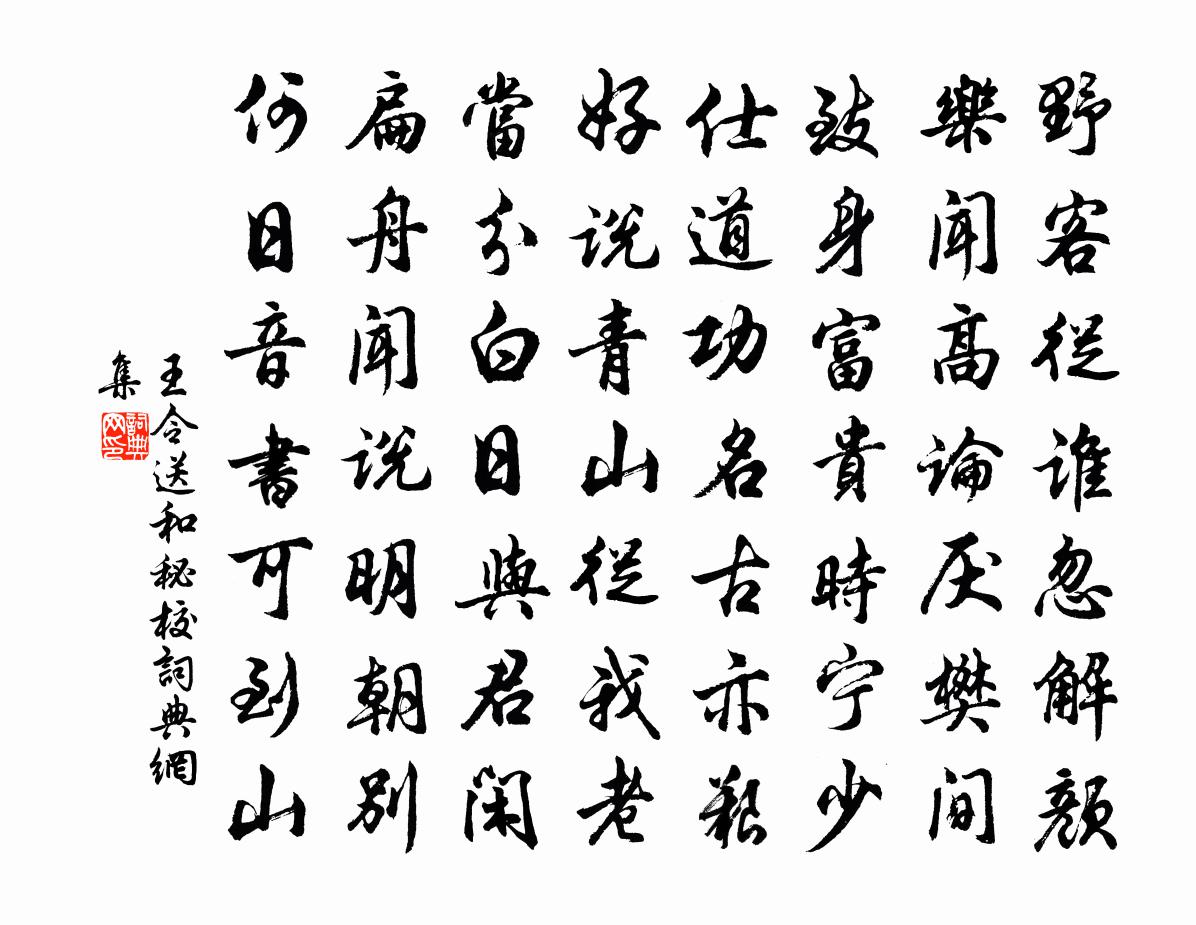 野客從誰忽解顏
樂聞高論厌樊间
致身富貴時宁少
仕道功名古亦艱
好说青山從我老
當分白日與君闲
扁舟闻说明朝别
何日音書可到山
王令送和秘校詞典網
集
詞典
网印